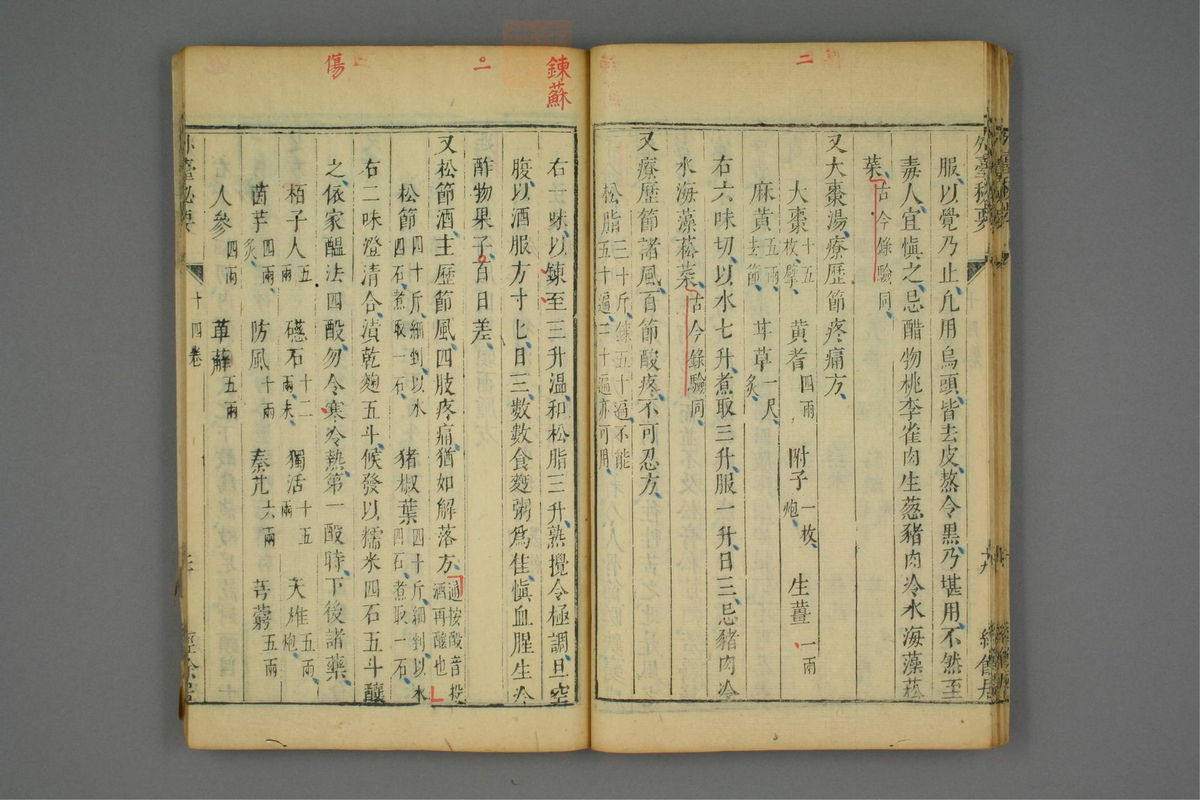 二
外臺秘要
服以覺乃止凡用烏頭皆去皮熬令黑乃堪用不然至
毒人宜慎之忌醋物桃李雀肉生葱豬肉冷水海藻菘
菜古今錄驗同
又大棗湯療歷節疼痛方
大棗十五枚擘 黃耆四兩 附子一枚炮 生薑一兩
麻黃五兩去節 甘草一尺炙
右六味切以水七升煮取三升服一升日三忌豬肉冷
水海藻菘菜古今錄驗同
又療歷節諸風百節酸疼不可忍方
松脂三十斤鍊五十遍不能五十遍二十遍亦可用
鍊蘇
一
傷
右一味以鍊 至三升温和松脂三升熟攪令極調旦空
腹以酒服方寸匕日三數數食麪粥爲佳慎血腥生冷
酢物果子百日差
又松節酒主歷節風四肢疼痛猶如解落方 酘音投酒再釀也
松節四十斤細剉以水四石煮取一石 猪椒葉四十斤細剉以水四石煮取一石
右二味澄清合漬乾麴五斗候發以糯米四石五斗釀
之依家醞法四酘勿令寒冷熱第一酘時下後諸藥
栢子人五兩 磁石十二兩末 獨活十五兩 天雄五兩炮
茵芋四兩炙 防風十兩 秦艽六兩 芎藭五兩
人參四兩 萆薢五兩
外臺秘要 十四卷 經餘居